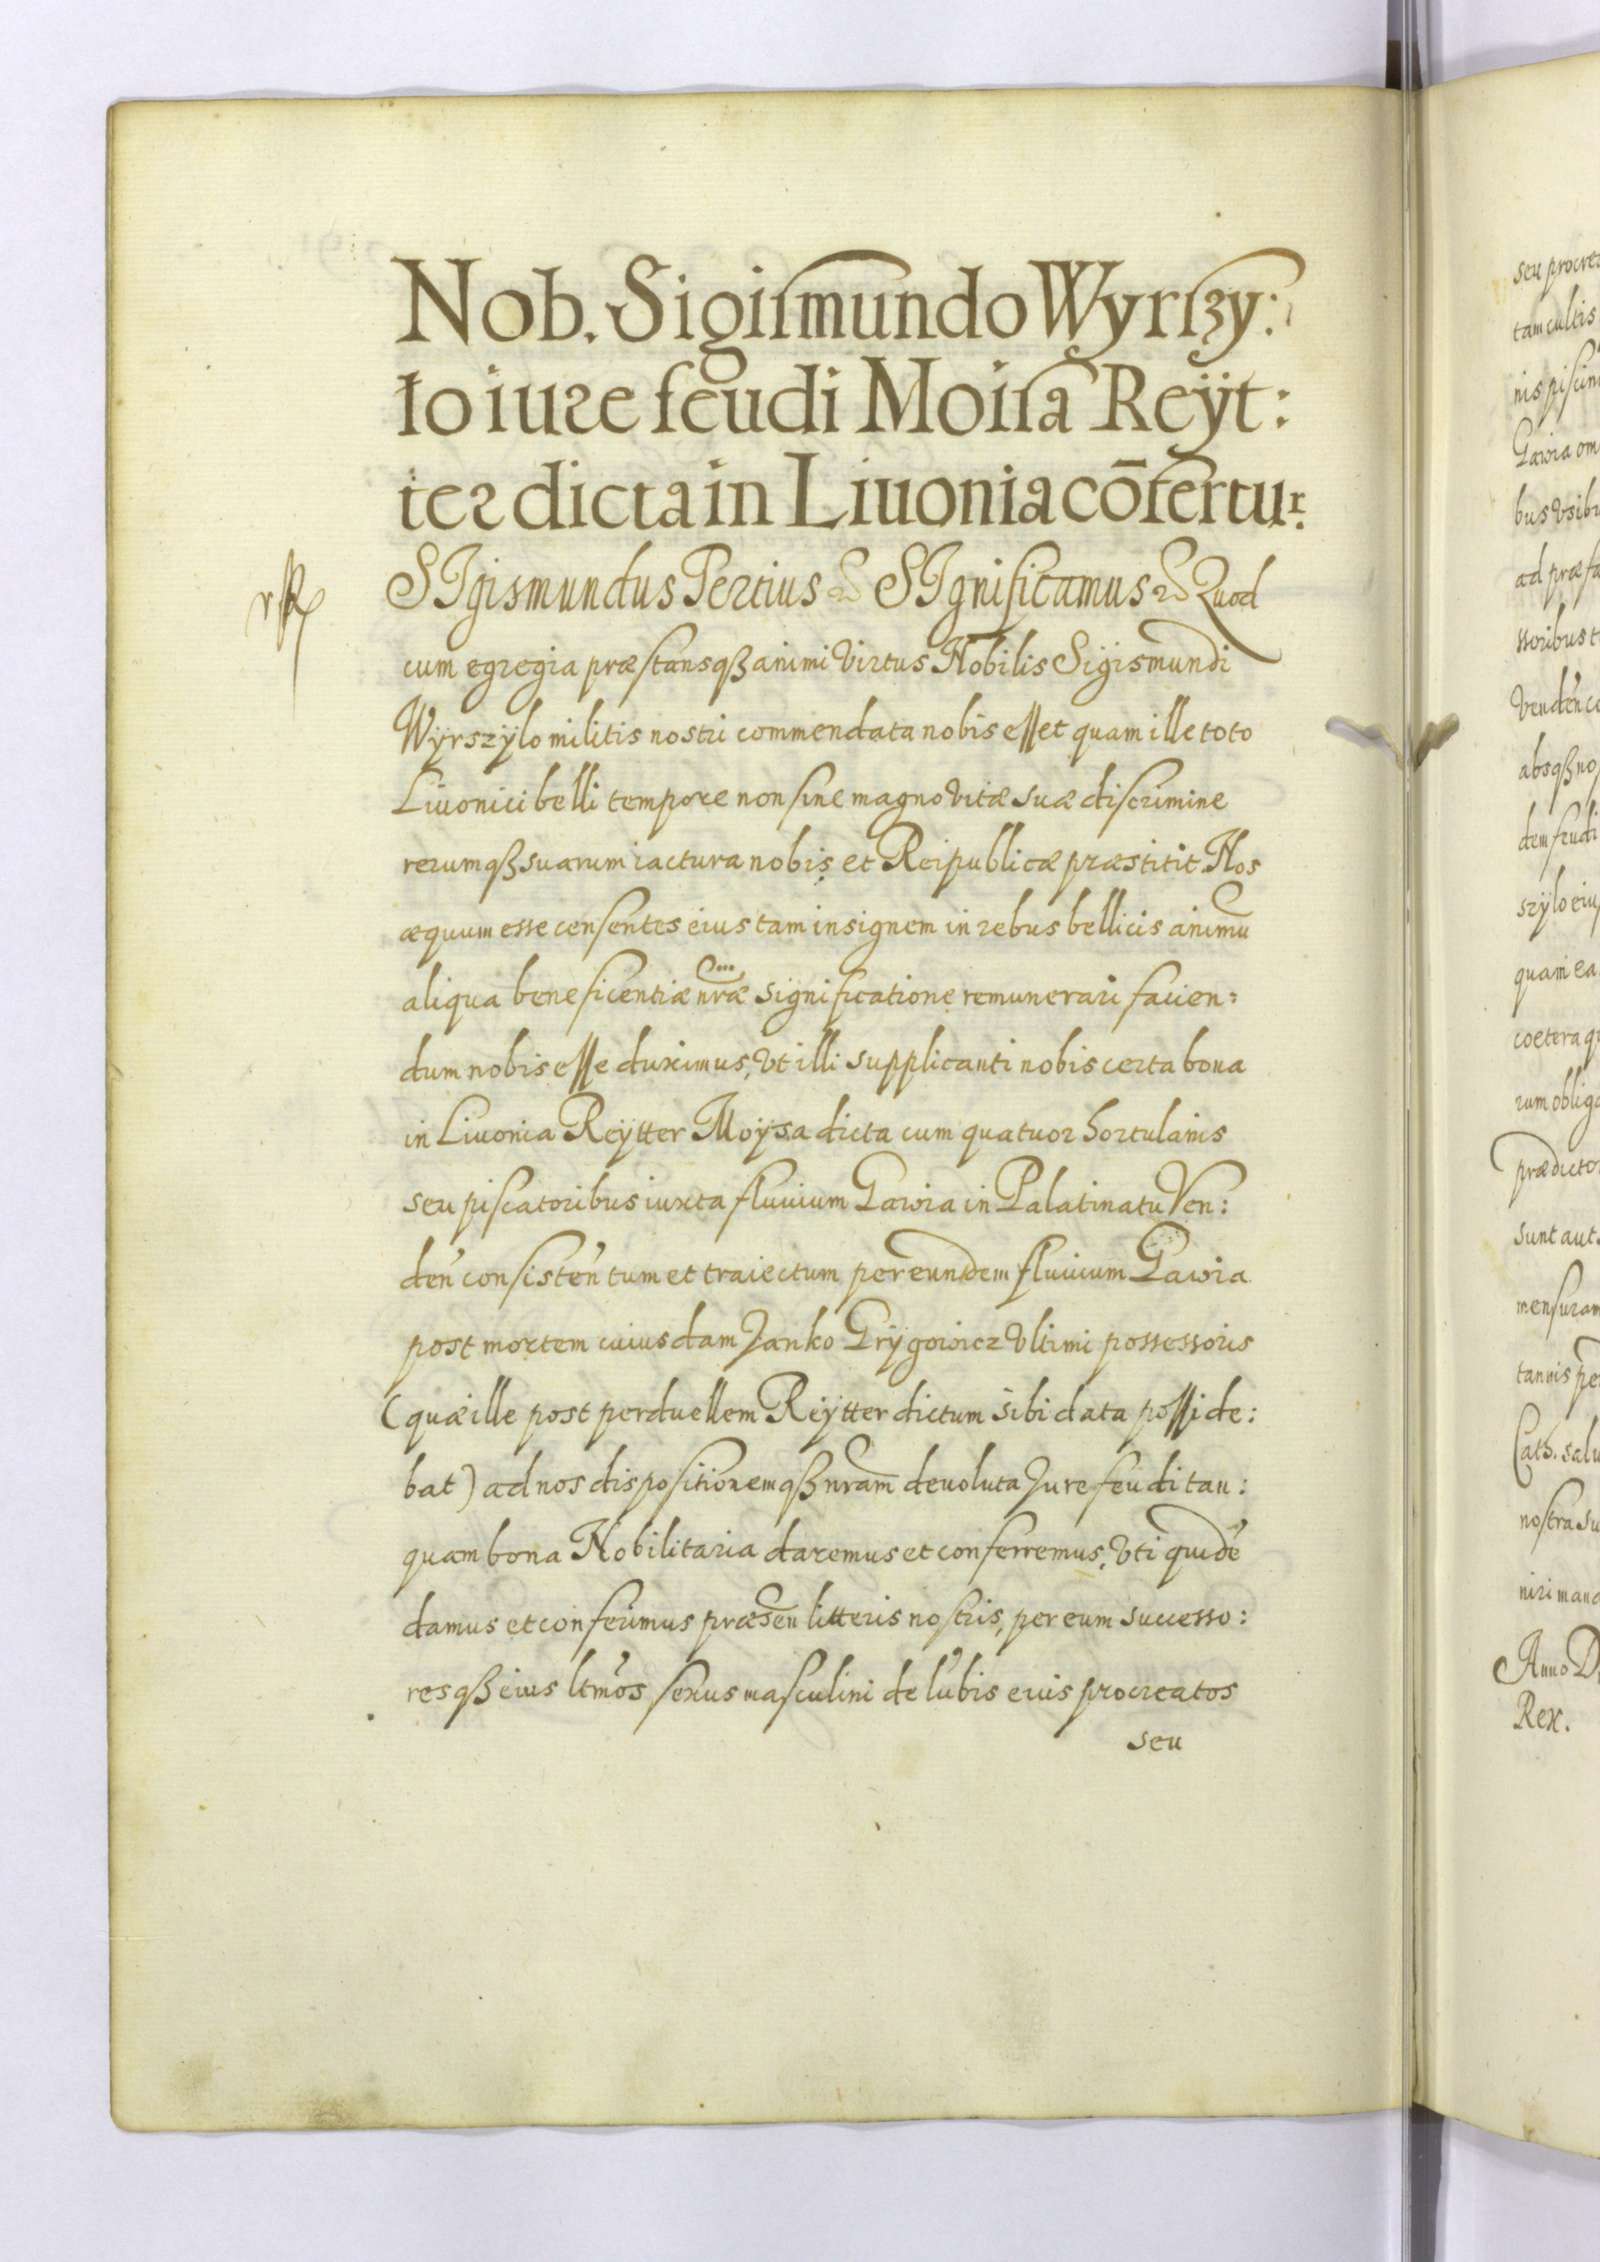 Nob. Sigismundo Wyrszy:
ło iure feudi Moisa Reÿt:
ter dicta in Liuonia cōfertur.
SIgismundus Tertius SIgnificamus Quod
cum egregia præstansqꝫ animi virtus Nobilis Sigismundi
Wÿrszÿlo militis nostri commendata nobis esset quam ille toto
Liuonici belli tempore non sine magno vitæ suæ discrimine
rerumqꝫ suarum iactura nobis et Reipublicæ præstitit Nos
æquum esse censentes eius tam insignem in rebus bellicis animū
aliqua beneficentiæ nr̄æ significatione remunerari facien:
dum nobis esse duximus, vt illi supplicanti nobis certa bona
in Liuonia Reÿtter Moÿsa dicta cum quatuor hortulanis
seu piscatoribus iuxta fluuium Gawia in Palatinatu Ven:
deń consisteń tum et traiectum per eundem fluuium Gawia
post mortem cuiusdam Janko Grÿgowicz vltimi possessoris
(quæ ille post perduellem Reÿtter dictum sibi data posside:
bat) ad nos dispositionemqꝫ nr̄am deuoluta Jure feudi tan:
quam bona Nobilitaria daremus et conferremus, vti quidē
damus et conferimus præsen litteris nostris, per eum successo:
resqꝫ eius ltm̄os sexus masculini de lubis eius procreatos
seu
seu
tam cultis
Gawia om
ad præfa
ssoribus
absqꝫ no
dem feudi
szÿlo eius
quam ea
coetera
sunt aut
tannis
Cath. salu
nostra su
niri mand
Anno D
Rex.